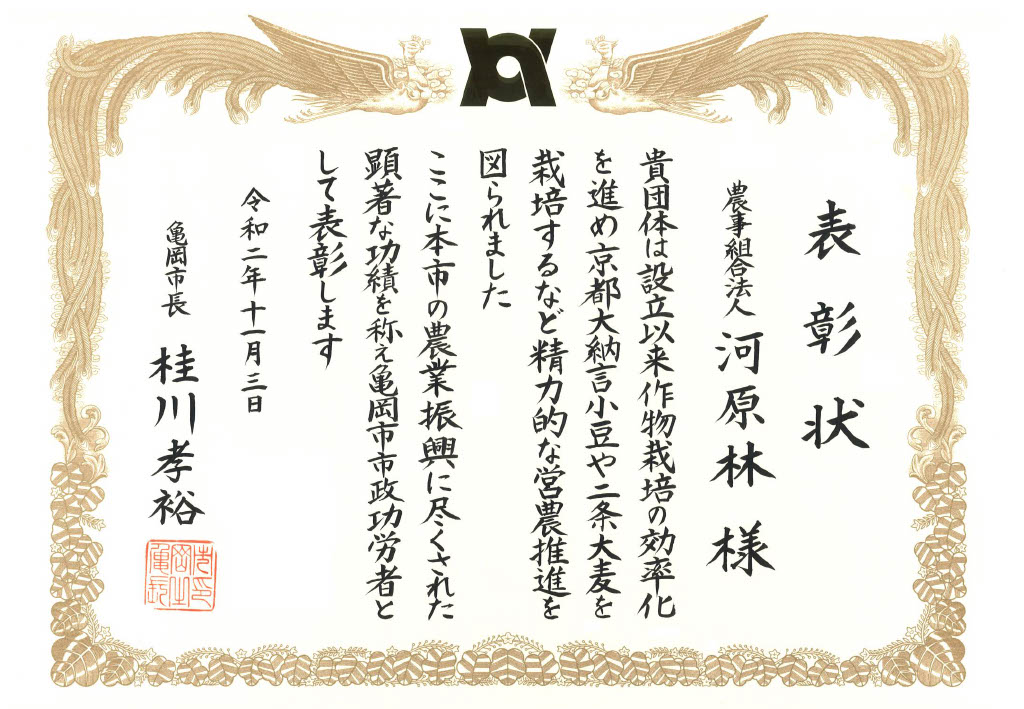 表彰状
農事組合法人 河原林 様
貴団体は設立以来作物栽培の効率化
を進め京都大納言小豆や二条大麦を
栽培するなど精力的な営農推進を
図られました
ここに本市の農業振興に尽くされた
顕著な功績を称え亀岡市市政功労者と
して表彰します
令和二年十一月三日
亀岡市長 桂川孝裕